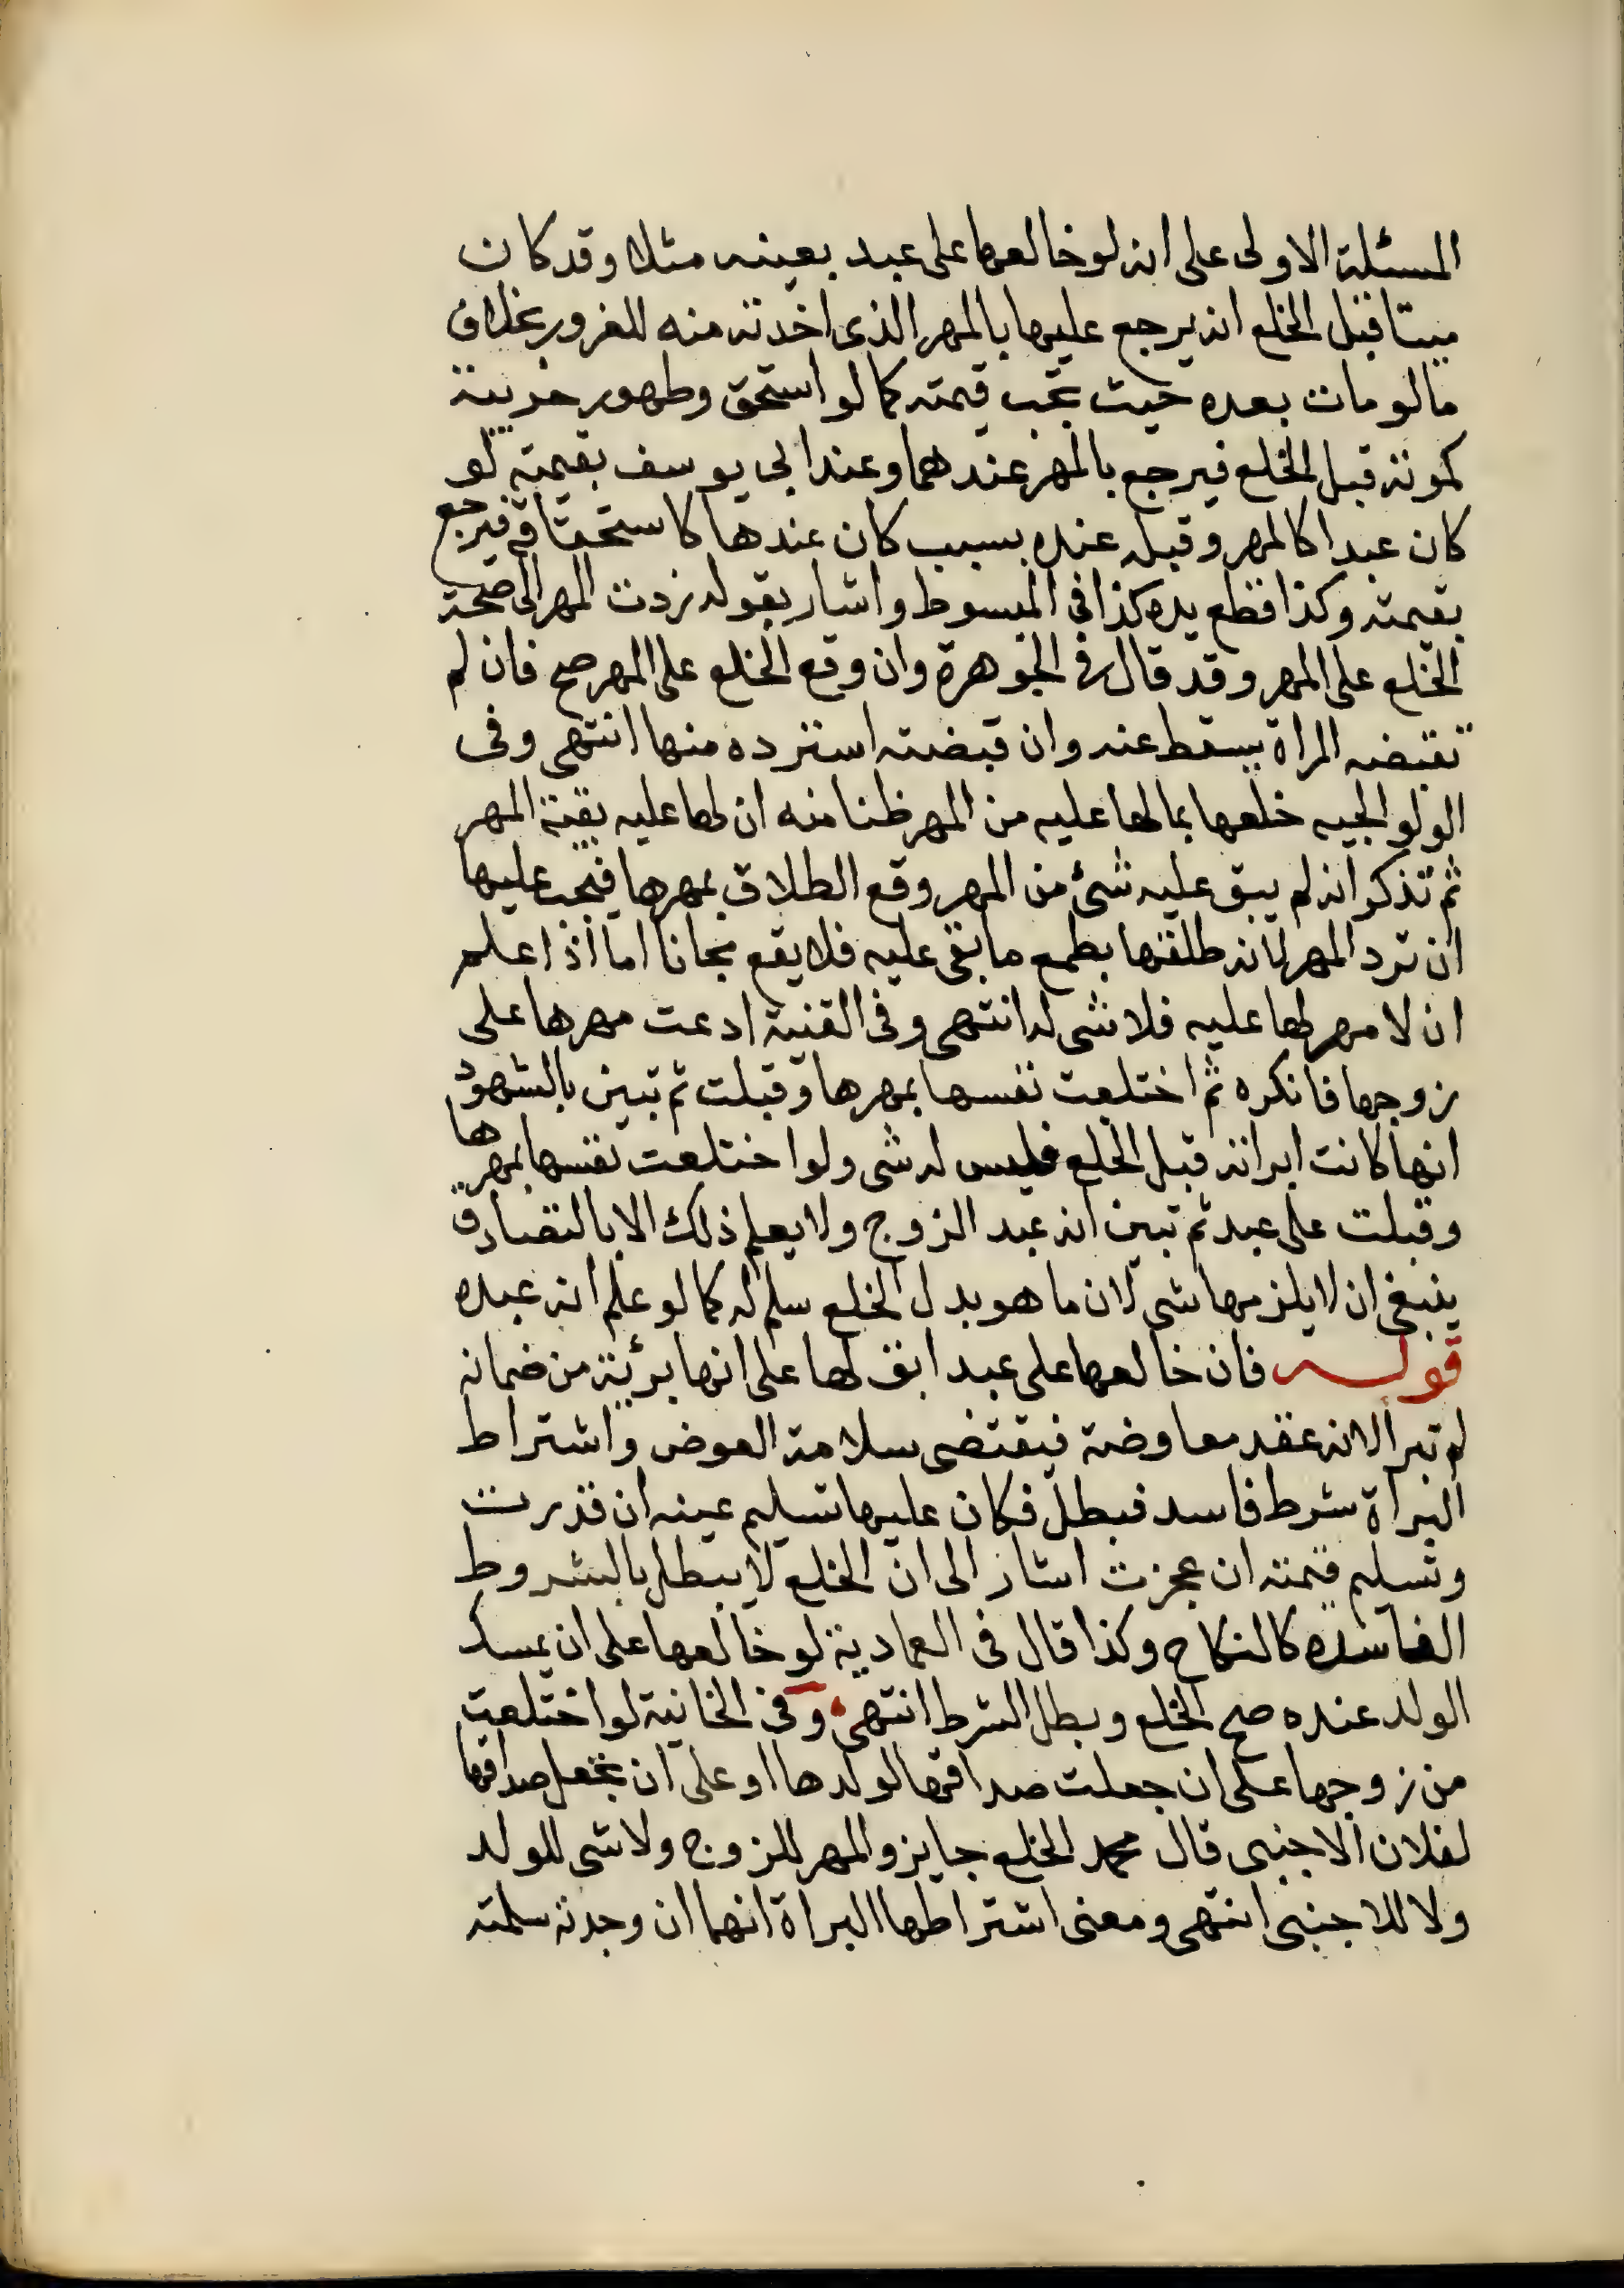 المسئلة الاولى على انه لو خالعها على عبد بعينه مثلا وقد كان
ميتا قبل الخلع انه يرجع عليها بالمهر الذى اخذته منه للغرور بخلاف
مالو مات بعده حيث تجب قيمته كما لو استحق وظهور حريته
كموته قبل الخلع فيرجع بالمهر عندهما وعند ابى يوسف بقيمته لو
كان عبدا كالمهر وقتله عنده بسبب كان عندها كاستحقاقه فيرجع
بقيمته وكذا قطع يده كذا فى المبسوط واشار بقوله زدت المهر الى صحة
الخلع على المهر وقد قال فى الجوهرة وان وقع الخلع على المهر صح فان لم
تقبضه المراة يسقط عنه وان قبضته استرده منها انتهى وفى
الولوالجيه خلعها بمالها عليه من المهر ظنا منه ان لها عليه بقية المهر
ثم تذكر انه لم يبق عليه شئ من المهر وقع الطلاق بمهرها فيجب عليها
ان ترد المهر لانه طلقها بطمع ما بقى عليه فلا يقع مجانا اما اذا علم
ان لا مهر لها عليه فلا شى له انتهى وفى القنية ادعت مهرها على
زوجها فانكره ثم اختلعت نفسها بمهرها وقبلت ثم تبين بالشهود
انها كانت ابراته قبل الخلع فليس له شى ولو اختلعت نفسها بمهرها
وقبلت على عبد ثم تبين انه عبد الزوج ولا يعلم ذلك الا بالتصادق
ينبغى ان لا يلزمها شى لان ما هو بدل الخلع سلم له كما لو علم انه عبده
قوله فان خالعها على عبد ابق لها على انها برئية من ضمانه
لم تبرا لانه عقد معاوضة فيقتضى سلامة العوض واشتراط
البراة شرط فاسد فبطل فكان عليها تسليم عينه ان قدرت
وتسليم قيمته ان عجزت اشار الى ان الخلع لا يبطل بالشروط
الفاسده كالنكاح وكذا قال فى العمادية لو خالعها على ان يمسك
الولد عنده صح الخلع وبطل الشرط انتهى وفى الخانية لو اختلعت
من زوجها على ان جعلت صداقها لولدها او على ان تجعل صداقها
لفلان الاجنبى قال محمد الخلع جايز والمهر للزوج ولا شى للولد
ولا للاجنبى انتهى ومعنى اشتراطها البراة انها ان وجدته سلمته